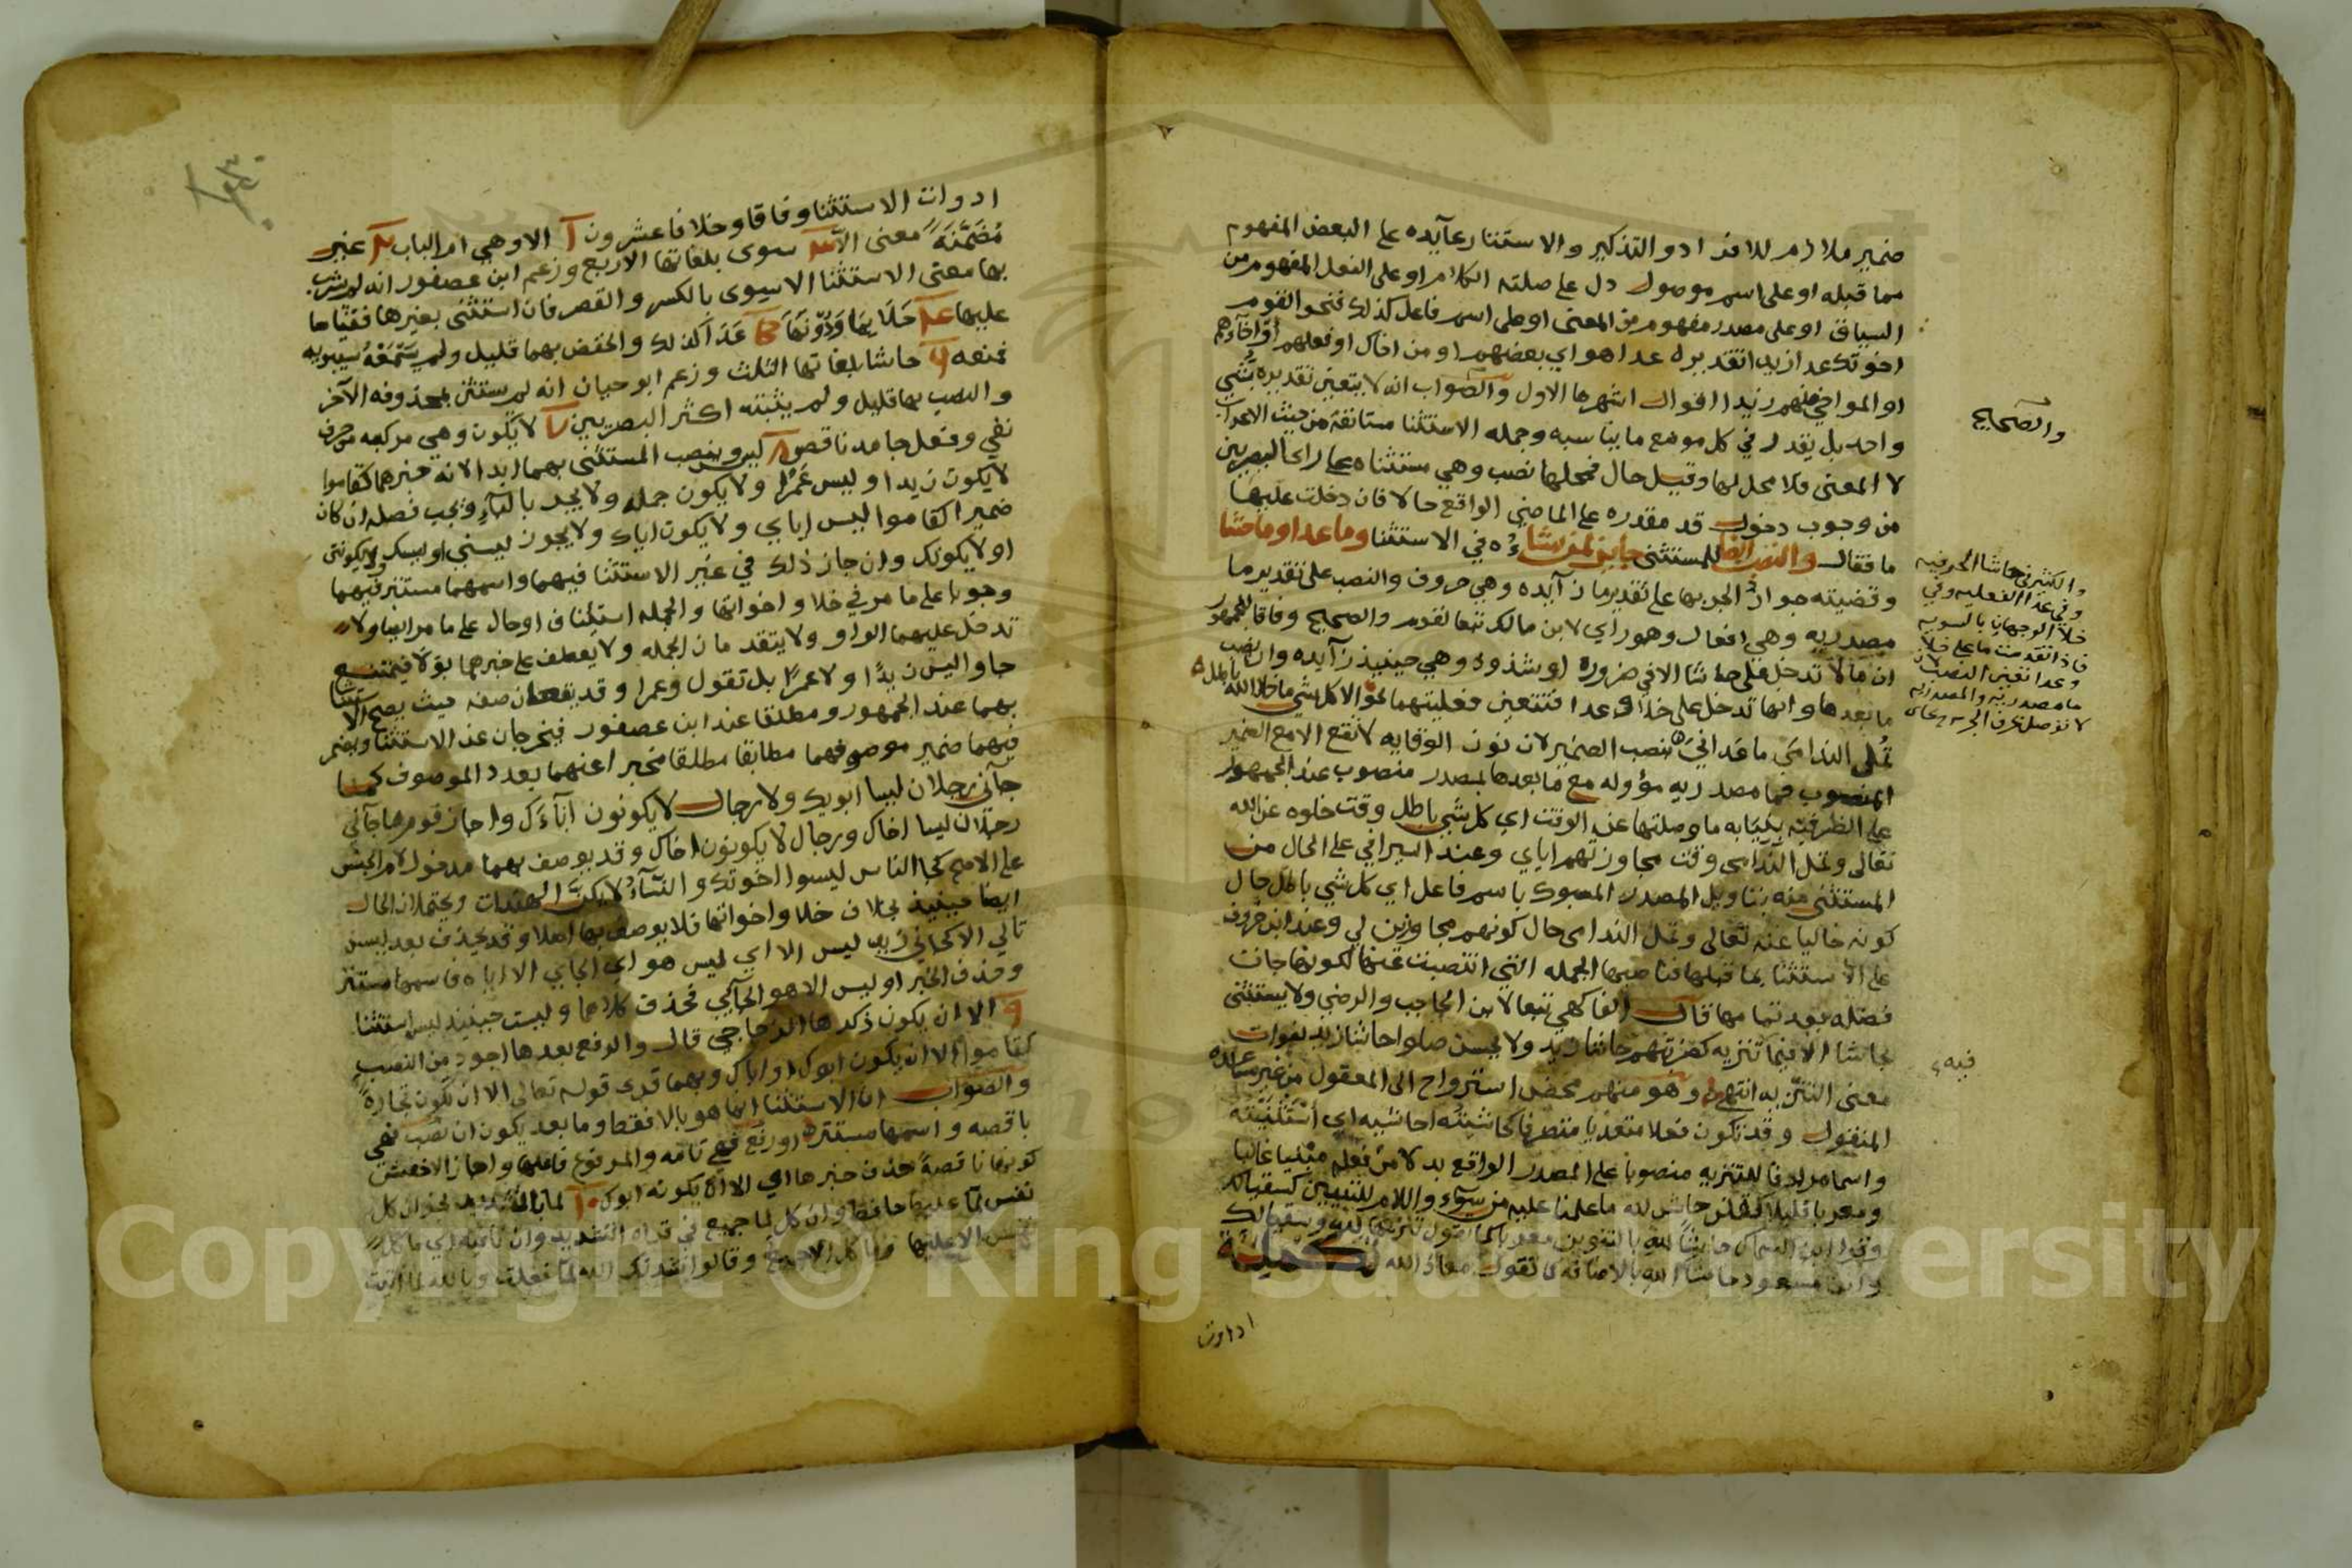 ضمير ملازم للافراد والتذكير والاستتار عآيده على البعض المفهوم
مما قبله او على اسم موصول دل على صلته الكلام او على الفعل المفهوم من
السياق او على مصدر مفهوم من المعنى او على اسم فاعل كذلك فنحو القوم
اخوتك عدا زيدا تقديره عدا هو اي بعضهم او من اخاك او فعلهم او اخآؤهم
او المواخي منهم زيدا اقوال اشهرها الاول والصواب انه لا يتعين تقديره بشي
واحد بل يقدر في كل موضع ما يناسبه وجمله الاستثنا مستانفة من حيث الاعراب
لا المعنى فلا محل لها وقيل حال فمحلها نصب وهي مستثناه على راي البصريين
من وجوب دخول قد مقدره على الماضي الواقع حالا فان دخلت عليها
ما فقال والنصب ايضا للمستثنى جايز لمن يشاءُ في الاستثنا وما عدا وما حشا
وقضيته جواز الجر بها على تقدير ما زآيده وهي حروف والنصب على تقدير ما
مصدريه وهي افعال وهو راي لابن مالك تبعا لقوم والصحيح وفاقا للجمهور
ان ما لا تدخل على حاشا الا في ضروره او شذوذ وهي حينيذ زآيده وان نصب
ما بعدها وانها تدخل على خلا وعدا فتتعين فعليتهما نحو الا كل شي ما خلا الله باطل
تمل الندامى ما عداني بنصب الضمير لان نون الوقايه لا تقع الا مع الضمير
المنصوب فما مصدريه مؤوله مع ما بعدها بمصدر منصوب عند الجمهور
على الظرفيه بنيابه ما وصلتها عن الوقت اي كل شي باطل وقت خلوه عن الله
تعالى وتمل الندامى وقت مجاوزتهم اياي وعند السيرافي على الحال من
المستثنى منه بتاويل المصدر المسبوك باسم فاعل اي كل شي باطل حال
كونه خاليا عنه تعالى وتمل الندامى حال كونهم مجاوزين لي وعند ابن خروف
على الاستثنا بما قبلها فناصبها الجمله التي انتصبت عنها لكونها جات
فضله بعد تمامها قال الفاكهي تبعا لابن الحاجب والرضي ولا يستثنى
بحاشا الا فيما تنزيه كضربتهم حاشا زيد ولا يحسن صلوا حاشا زيد لفوات
معنى التنزيه انتهى وهو منهم محض استرواح الى المعقول من غير مساعده
المنقول وقد تكون فعلا متعديا متصرفا كحاشيته احاشيه اي استثنيته
واسما مرادفا للتنزيه منصوبا على المصدر الواقع بدلا من فعله مبنيا غالبا
ومعربا قليلا كقلن حاش لله ما علمنا عليه من سوء واللام للتبيين كسقيا لك
وقرا ابن السماك حاشاً لله بالتنوين معربا كما تقول تنزيها لله وسقيا لك
وابن مسعود حاشا الله بالاضافه كما تقول معاذ الله تكميلة
والصحيح
والكثير في حاشا الحرفيه
وفي عدا الفعليه وفي
خلا الوجهان بالسويه
فاذا تقدمت ما على خلا
وعدا تعين النصب لان
ما مصدريه والمصدريه
لا توصل بحرف الجر
فيه
ادوات
ادوات الاستثنا وفاقا وخلافا عشرون الا وهي ام الباب غير
مُضَمَّنَةً معنى الا سوى بلغاتها الاربع وزعم ابن عصفور انه لم يشرب
بها معنى الاستثنا الا سِوى بالكسر والقصر فان استثنى بغيرها فقياسا
عليها خلا عدا كذلك والخفض بهما قليل ولم يسمعه سيبويه
فمنعه حاشا بلغاتها الثلث وزعم ابو حيان انه لم يستثن بمحذوفه الآخر
والنصب بها قليل ولم يثبته اكثر البصريين لا يكون وهي مركبه من حرف
نفي وفعل جامد ناقص ليس وينصب المستثنى بهما ابدا لانه خبرهما كقاموا
لا يكون زيدا او ليس عَمْرًا ولا يكون جمله ولا يجر بالبآء ويجب فصله ان كان
ضميرا كقاموا ليس اياي ولا يكون اياك ولا يجوز ليسني او ليسك ولا يكونني
او لا يكونك وان جاز ذلك في غير الاستثنا فيهما واسمهما مستتر فيهما
وجوبا على ما مر في خلا واخواتها والجمله استئناف او حال على ما مر ايضا ولا
تدخل عليهما الواو ولا يتقدمان الجمله ولا يعطف على خبرهما بولا فيمتنع
جاوا ليس زيدًا ولا عمرًا بل تقول وعمرا وقد يقعان صفه حيث يصح الاستثنا
بهما عند الجمهور ومطلقا عند ابن عصفور فيخرجان عن الاستثنا ويضمر
فيهما ضمير موصوفهما مطابقا مطلقا مخبرا عنهما بعدد الموصوف كما
جآني رجلان ليسا ابويك ولا رجال لا يكونون آباءك واجاز قوم ما جآني
رجلان ليسا اخاك ورجال لا يكونون اخاك وقد يوصف بهما مدخول لام الجنس
على الاصح كجا الناس ليسوا اخوتك والنسآءُ لا يكنَّ الهندات ويحتملان الحال
ايضا حينيذ بخلاف خلا واخواتها فلا يوصف بها اصلا وقد يحذف بعد ليس
تالي الا كجاني زيد ليس الا اي ليس هو اي الجاي الا اياه فاسمها مستتر
وحذف الخبر او ليس الا هو الجآئي فحذف كلاهما وليست حينيذ ليس استثنا
الا ان يكون ذكرها الزجاجي قال والرفع بعدها اجود من النصب
كقاموا الا ان يكون ابوك او اباك وبهما قرى قوله تعالى الا ان تكون تجارةً
والصواب ان الاستثنا انما هو بالا فقط وما بعد يكون ان نصب فهي
ناقصه واسمها مستتر او رفع فهي تامه والمرفوع فاعلها واجاز الاخفش
كونها ناقصةً حذف خبرها اي الا ان يكونه ابوك لما بالتشديد نحو ان كل
نفس لمّا عليها حافظ وان كل لما جميع في قراة التشديد وان نافيه اي ما كل
نفس الا عليها وما كل الا جميع وقالوا نشدتك الله لما فعلت وبالله لما
Copyright © King Saud University